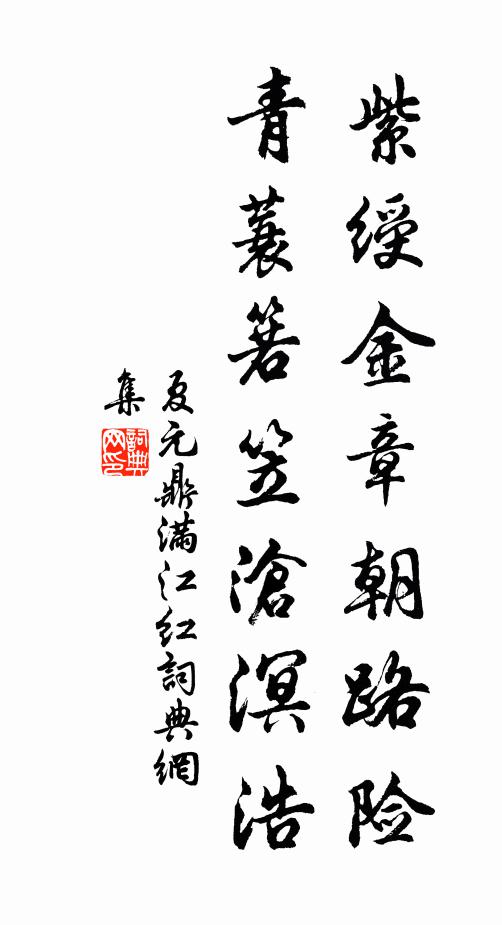 紫绶金章朝路险
青蓑箬笠滄溟浩
夏元鼎满江红詞典網
集
詞典网印